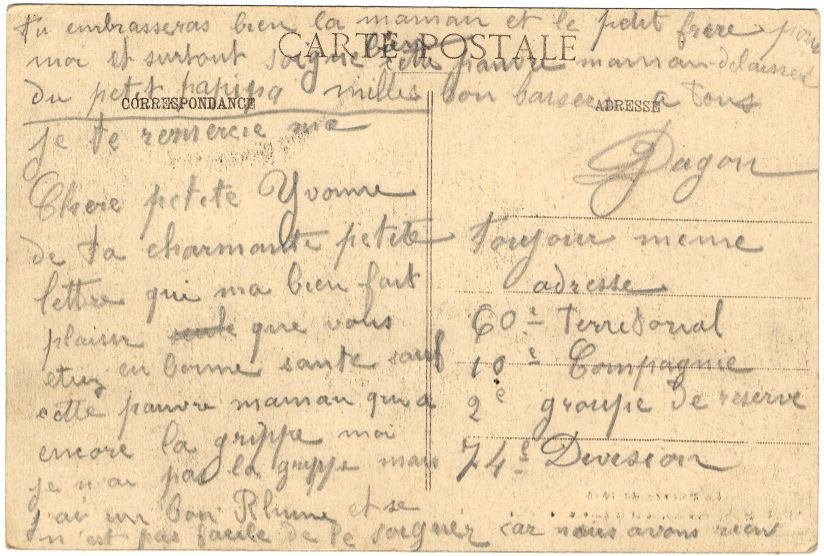 Tu embrasseras bien la maman et le petit frere pour
moi et surtout soigne bien cette pauvre maman delaissee
du petit papipa milles bon baisers a tous
CARTE POSTALE
CORRESPONDANCE
je te remercie ma
Chere petite Yvonne
de ta charmante petite
lettre qui ma bien fait
plaisir que vous
etiez en bonne sante sauf
cette pauvre maman qui a
encore la grippe moi
je n'ai pas la grippe mais
j'ai un bon Rhume et se
n'est pas facile de le soigner car nous avons rien
ADRESSE
Dagon
Toujour meme
adresse
60e Territorial
10e Compagnie
2e groupe de reserve
74e Division